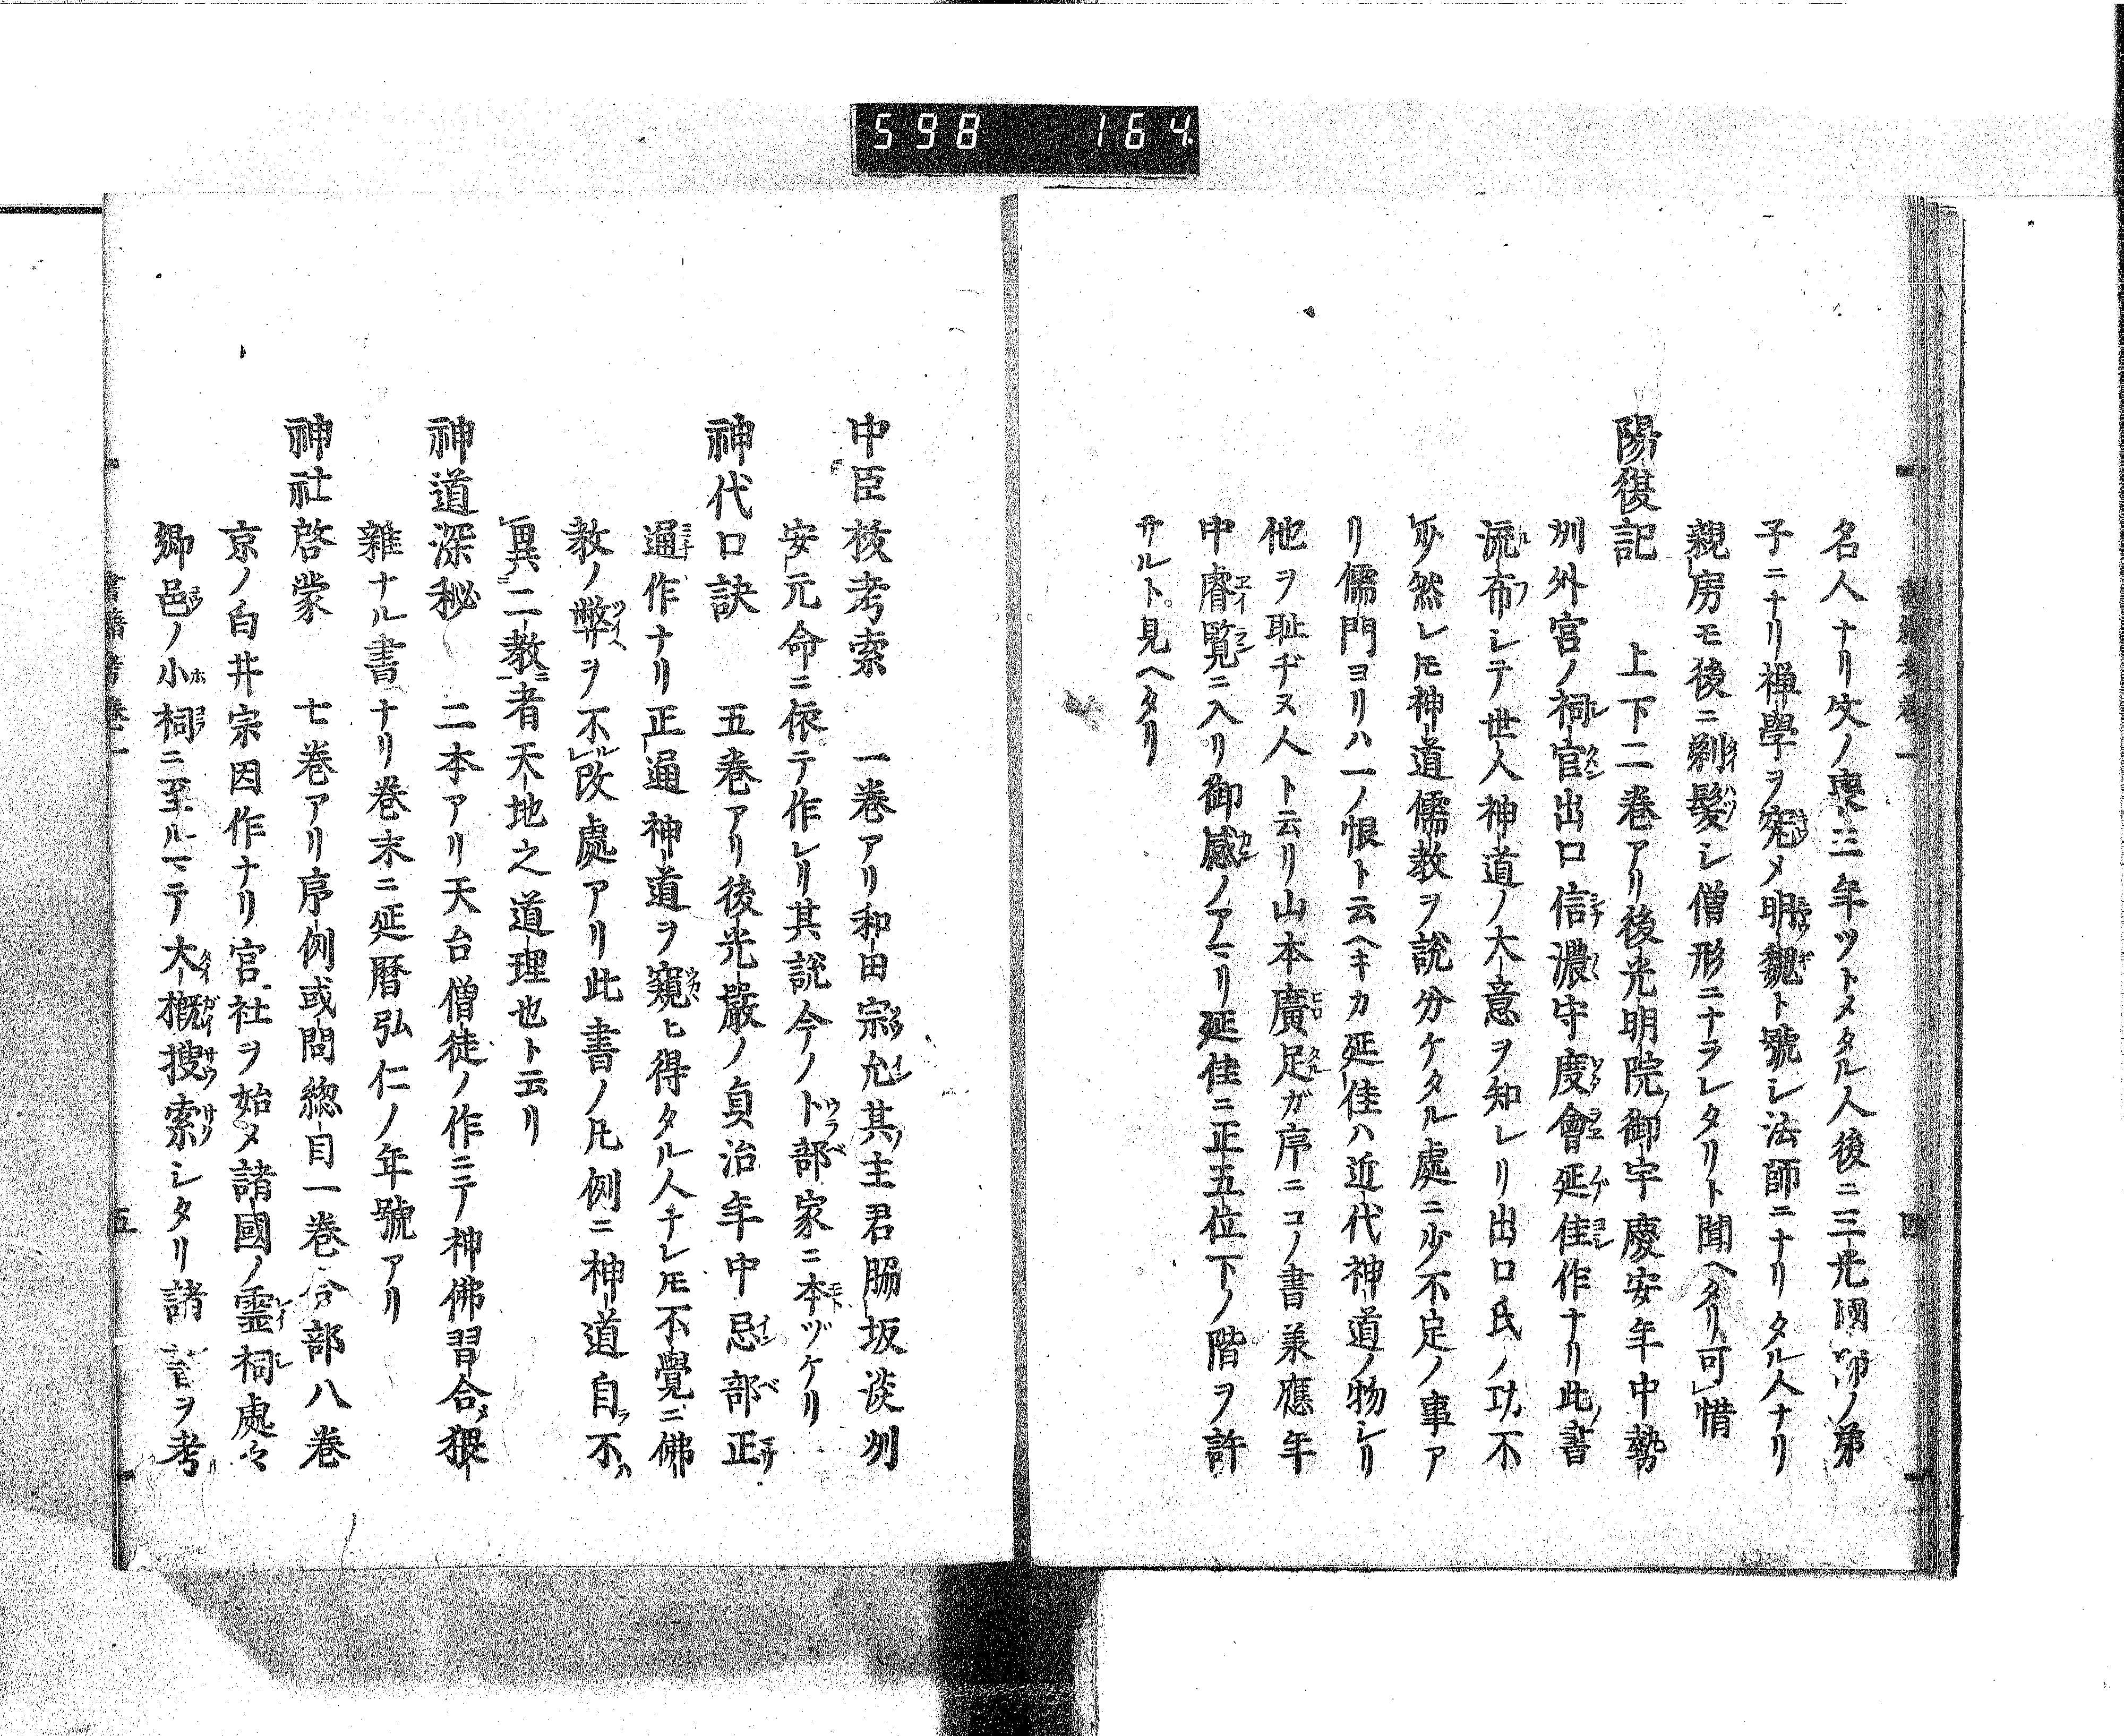 598 164
名人ナリ父ノ喪三年ツトメタル人後ニ三光國師ノ弟
子ニナリ禅學ヲ究メ明魏ト號シ法師ニナリタル人ナリ
親房モ後ニ剃髪シ僧形ニナラレタリト聞ヘタリ可惜
陽復記 上下二巻アリ後光明院御宇慶安年中勢
州外官ノ祠官出口信濃守度會延佳作ナリ此書
流布シテ世人神道ノ大意ヲ知レリ出口氏ノ功不
少然レ𪜈神道儒教ヲ説分ケタル處ニ少不足ノ事ア
リ儒門ヨリハ一ノ恨ト云ヘキカ延佳ハ近代神道ノ物シリ
他ヲ耻ヂヌ人ト云リ山本廣足ガ序ニコノ書兼應年
中睿覧ニ入リ御感ノアマリ延佳ニ正五位下ノ階ヲ許
サルト見ヘタリ
書籍考巻一 四
中臣祓考索 一巻アリ和田宗允其主君脇坂淡州
安元命ニ依テ作レリ其説今ノ卜部家ニ本ヅケリ
神代口訣 五巻アリ後光嚴ノ貞治年中忌部正
通作ナリ正通神道ヲ窺ヒ得タル人ナレ𪜈不覺ニ佛
教ノ弊ヲ不改處アリ此書ノ凡例ニ神道自不
異二教者天地之道理也ト云リ
神道深秘 二本アリ天台僧徒ノ作ニテ神佛習合猥
雜ナル書ナリ巻末ニ延暦弘仁ノ年號アリ
神社啓蒙 七巻アリ序例或問総目一巻合部八巻
京ノ白井宗因作ナリ官社ヲ始メ諸國ノ霊祠處々
郷邑ノ小祠ニ至ルマテ大概搜索シタリ諸書ヲ考
書籍考巻一 五